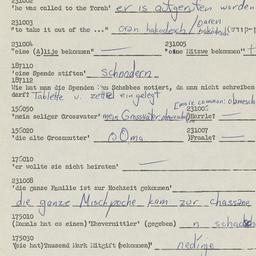 231002
'he was called to the Torah' er is aufgerufen worden
231003
"to take it out of the ..." oron hakodesch / Daren
231004 231005
"eine (A)lije bekommen" — "eine Mitzwe bekommen"
187110
'eine Spende stiften' schnodern
187112
Wie hat man die Spenden am Schabbes notiert, da man nicht schreiben
darf? Tablette u. zettel eingelegt
156050 231006
'mein seliger Grossvater' mein Grossvater
156020 231007
'die alte Grossmutter' Oma Private?
175010
'er wollte sie nicht heiraten' —
231008
'die ganze Familie ist zur Hochzeit gekommen'
die ganze Mischpoche kam zur chassene
175010
(Damals hat es einen)'Ehevermittler' (gegeben) n schadchen
175030
(Sie hat)'tausend Mark Mitgift (bekommen)' nedinje